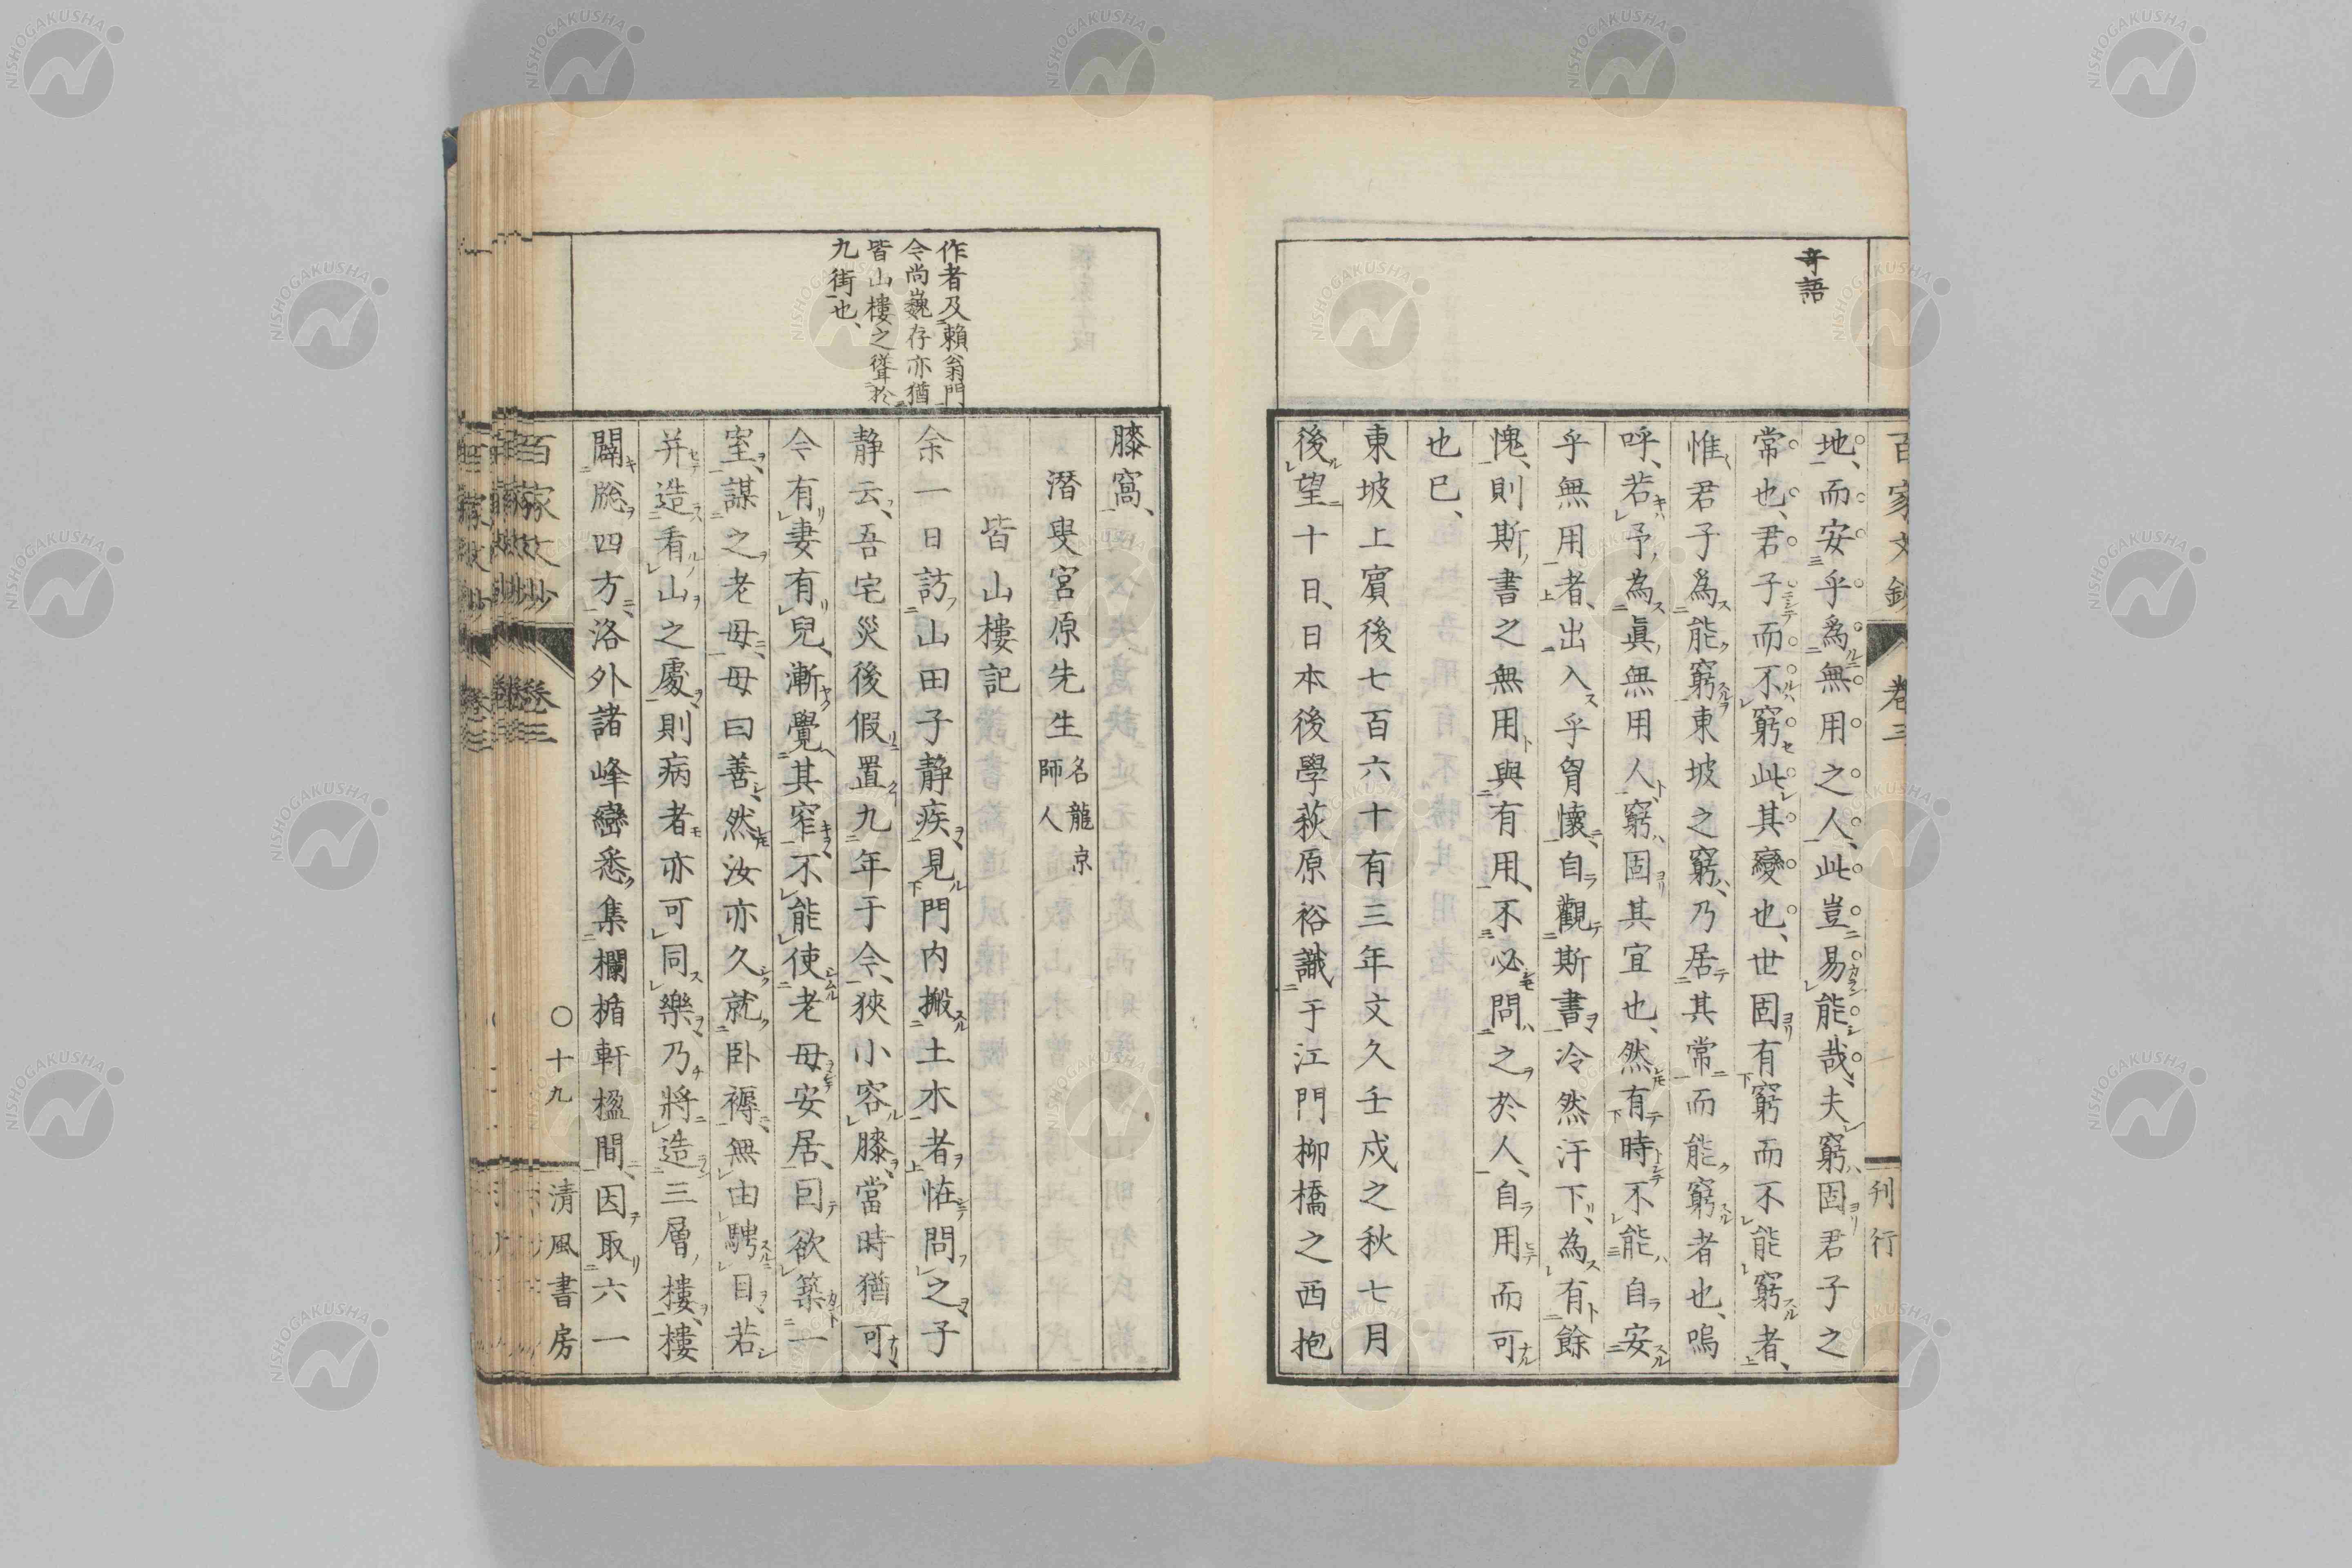 百家文鈔 卷三 刊行
奇語
地、而安乎爲無用之人、此豈易能哉、夫窮固君子之
常也、君子而不窮、此其變也、世固有窮而不能窮者、
惟君子爲能窮、東坡之窮、乃居其常而能窮者也、嗚
呼、若予為眞無用人、窮固其宜也、然有時不能自安
乎無用者、出入乎胷懷、自觀斯書、冷然汗下、為有餘
愧、則斯書之無用與有用、不必問之於人、自用而可
也已、
東坡上賓後七百六十有三年文久壬戌之秋七月
後望十日、日本後學萩原裕識于江門柳橋之西抱
膝窩、
潛叟宮原先生 名龍京師人
皆山樓記
作者及賴翁門、
今尚巍存亦猶
皆山樓之聳於
九街也、
余一日訪山田子静疾、見門内搬土木者、恠問之、子
静云、吾宅災後假置九年于今、狹小容膝、當時猶可、
今有妻有兒、漸覺其窄、不能使老母安居、因欲築一
室、謀之老母、母曰善、然汝亦久就臥褥、無由騁目、若
并造看山之處、則病者亦可同樂、乃將造三層樓、樓
闢牎四方、洛外諸峰巒悉集欄楯軒楹間、因取六一
百家文鈔 卷三 〇十九 清風書房